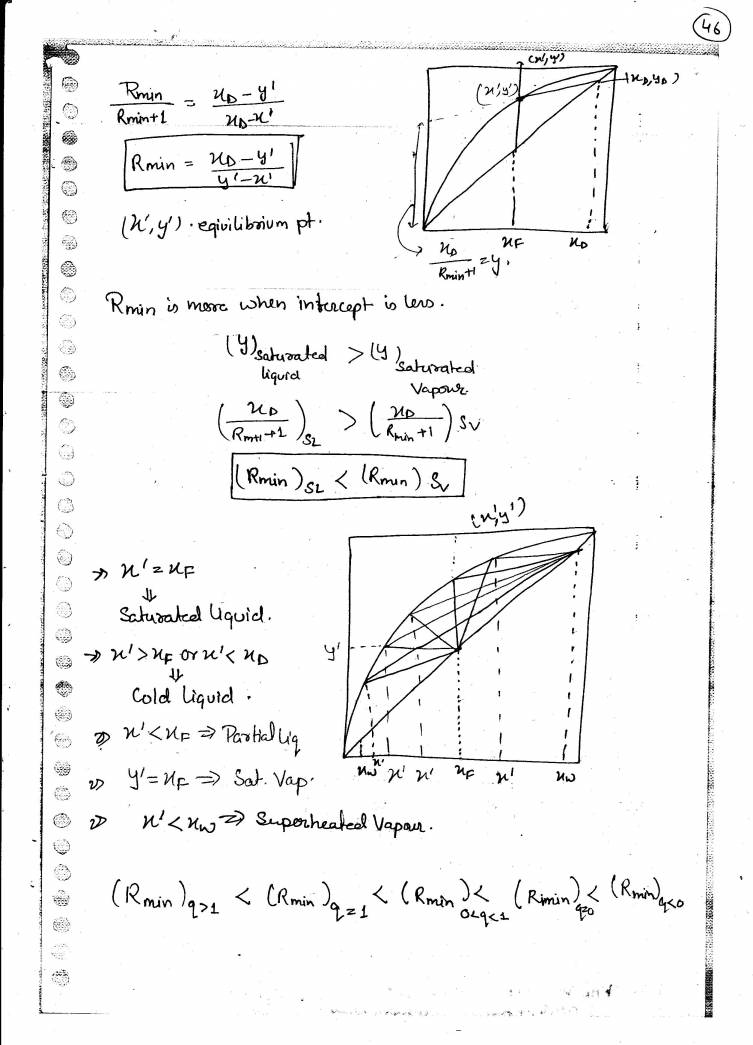 46
Rmin/Rmin+1 = xD - y'/xD - x'
Rmin = xD - y'/y' - x'
(x', y') · equilibrium pt.
(x', y')
(x', y')
(xD, yD)
xF xD
xD/Rmin+1 = y.
Rmin is more when intercept is less.
(y) saturated liquid > (y) saturated vapour
(xD/Rmin+1)SL > (xD/Rmin+1)SV
(Rmin)SL < (Rmin)SV
(x', y')
→ x' = xF
⇓
Saturated liquid.
→ x' > xF or x' < xD
⇓
Cold liquid.
⇒ x' < xF ⇒ Partial liq
⇒ y' = xF ⇒ Sat. Vap.
⇒ x' < xW ⇒ Superheated Vapour.
y'
xW x' x' x' xF x' xW
(Rmin)q>1 < (Rmin)q=1 < (Rmin)0<q<1 < (Rmin)q=0 < (Rmin)q<0